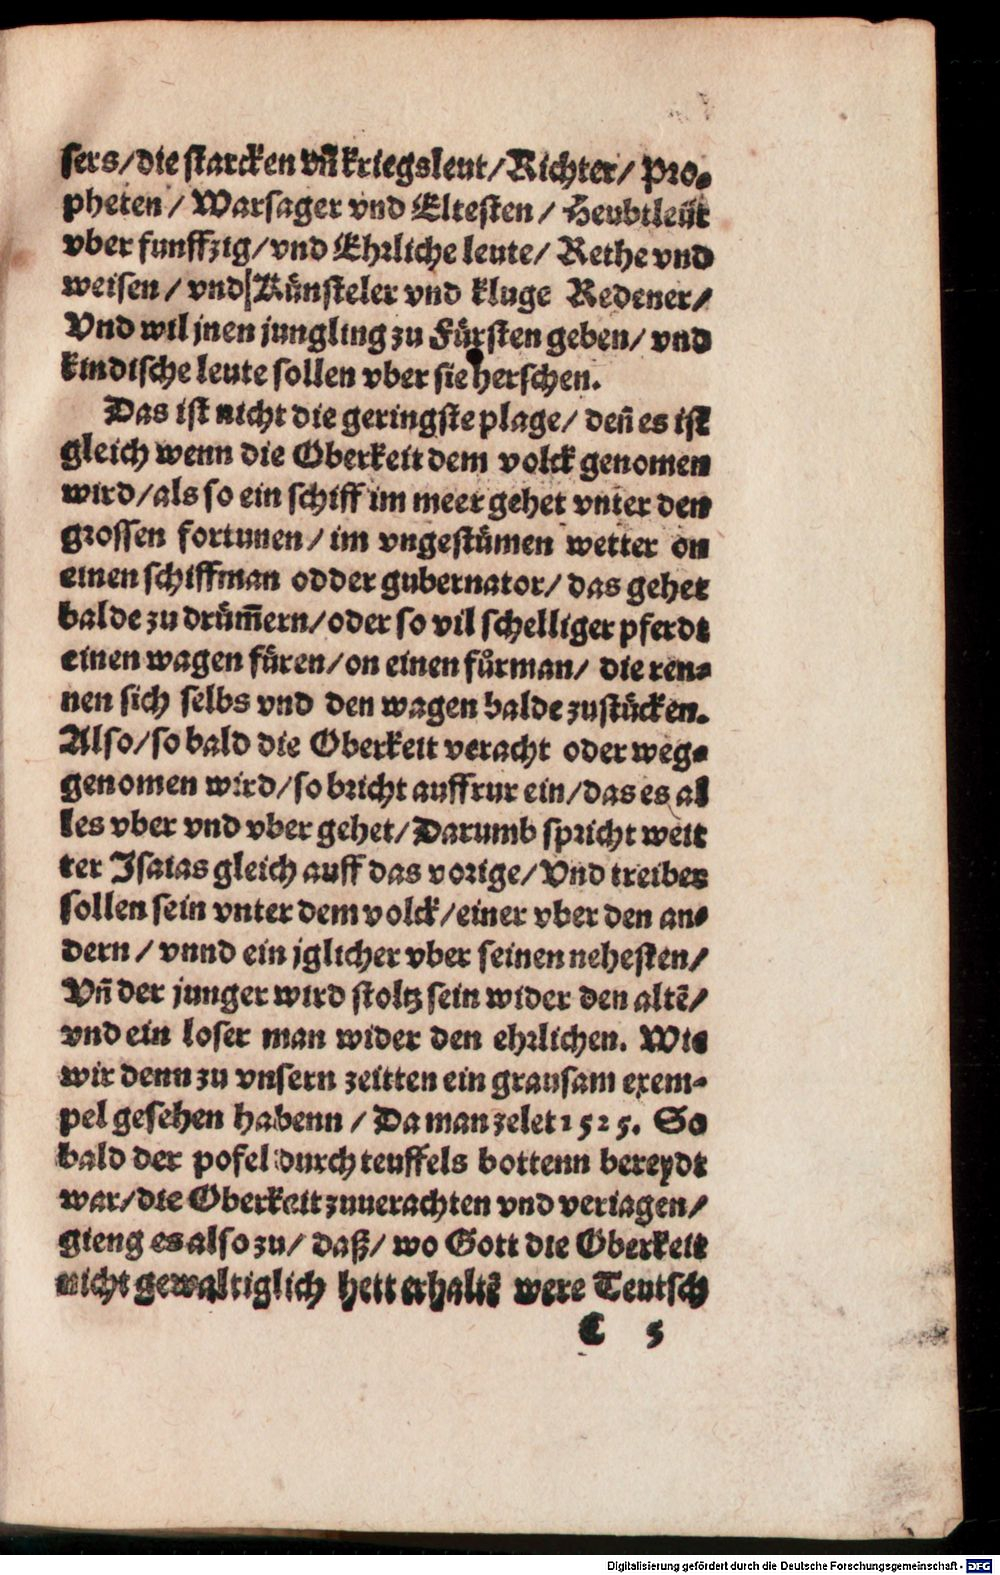 sers/die starcken vñ kriegsleut/Richter/ Pro-
pheten/ Warsager vnd Eltesten/ Heubtleüt
vber funffzig/vnd Ehrliche leute/ Rethe vnd
weisen/ vnd Künsteler vnd kluge Redener/
Vnd wil jnen jungling zu Fürsten geben/ vnd
kindische leute sollen vber sie herschen.
Das ist nicht die geringste plage/ deñ es ist
gleich wenn die Oberkeit dem volck genomen
wird/als so ein schiff im meer gehet vnter den
grossen fortunen/ im vngestümen wetter on
einen schiffman odder gubernator/ das gehet
balde zu drüm̃ern/oder so vil schelliger pferdt
einen wagen füren/on einen fůrman/ die ren-
nen sich selbs vnd den wagen balde zustücken.
Also/so bald die Oberkeit veracht oder weg-
genomen wird/so bricht auffrur ein/das es al
les vber vnd vber gehet/Darumb spricht weit
ter Isaias gleich auff das vorige/Vnd treiber
sollen sein vnter dem volck/einer vber den an-
dern/ vnnd ein jglicher vber seinen nehesten/
Vñ der junger wird stoltz sein wider den altē/
vnd ein loser man wider den ehrlichen. Wie
wir denn zu vnsern zeitten ein grausam exem-
pel gesehen habenn/ Da man zelet 1525. So
bald der pofel durch teuffels bottenn bereydt
war/die Oberkeit zuuerachten vnd veriagen/
gieng es also zu/ daß/ wo Gott die Oberkeit
nicht gewaltiglich hett erhaltē were Teutsch
C 5
Digitalisierung gefördert durch die Deutsche Forschungsgemeinschaft - DFG